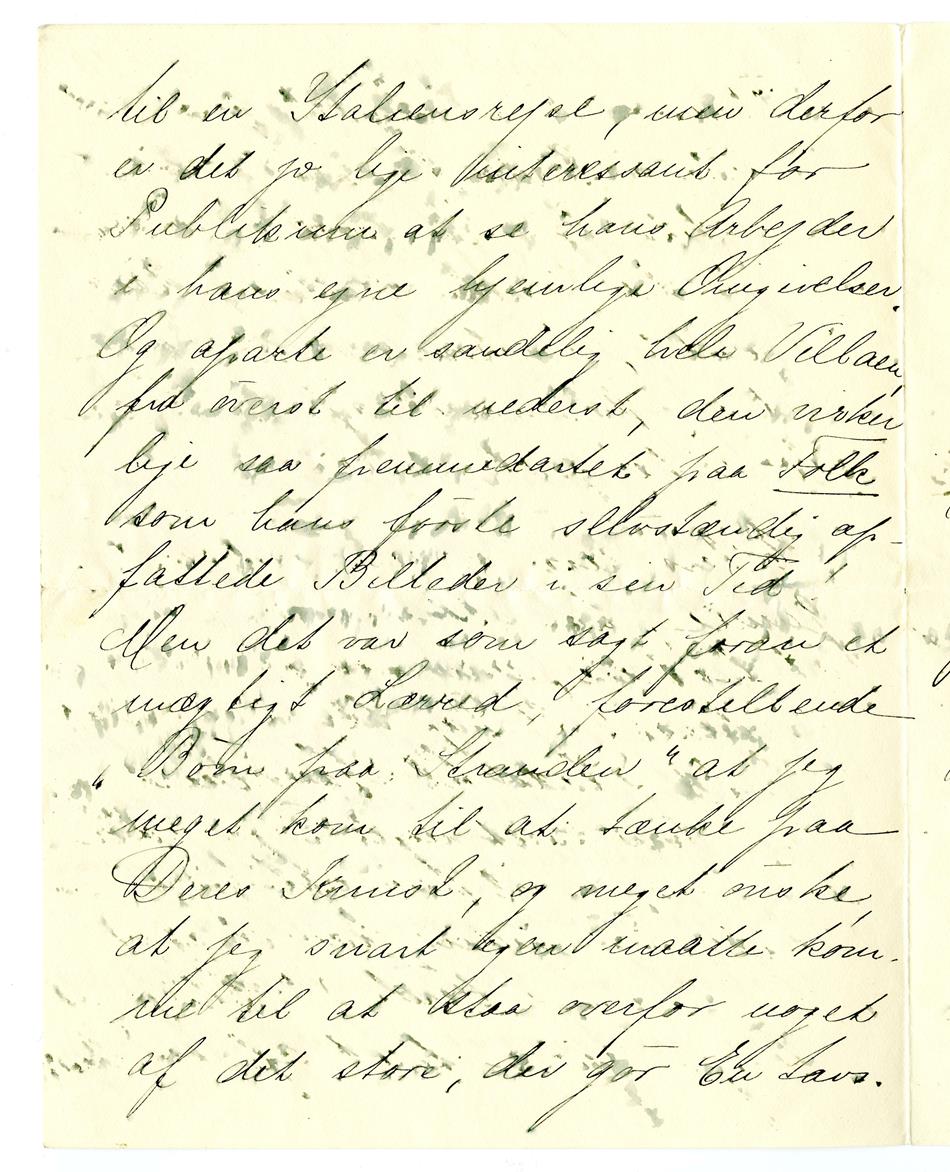 til en Italiensrejse, men derfor
er det jo lige interessant for
Publikum at se hans Arbejder
i hans egne hjemlige Omgivelser.
Og aparte er sandelig hele Villaen,
fra överst til nederst, den virker
lige saa fremmedartet paa Folk
som hans förste selvstændig op-
fattede Billeder i sin Tid!
Men det var som sagt foran et
mægtigt Lærred, forestillende
„Börn paa Stranden" at jeg
meget kom til at tænke paa
Deres Kunst, og meget önske,
at jeg snart igen maatte kom-
me til at staa overfor noget
af det store, der gör En tavs.